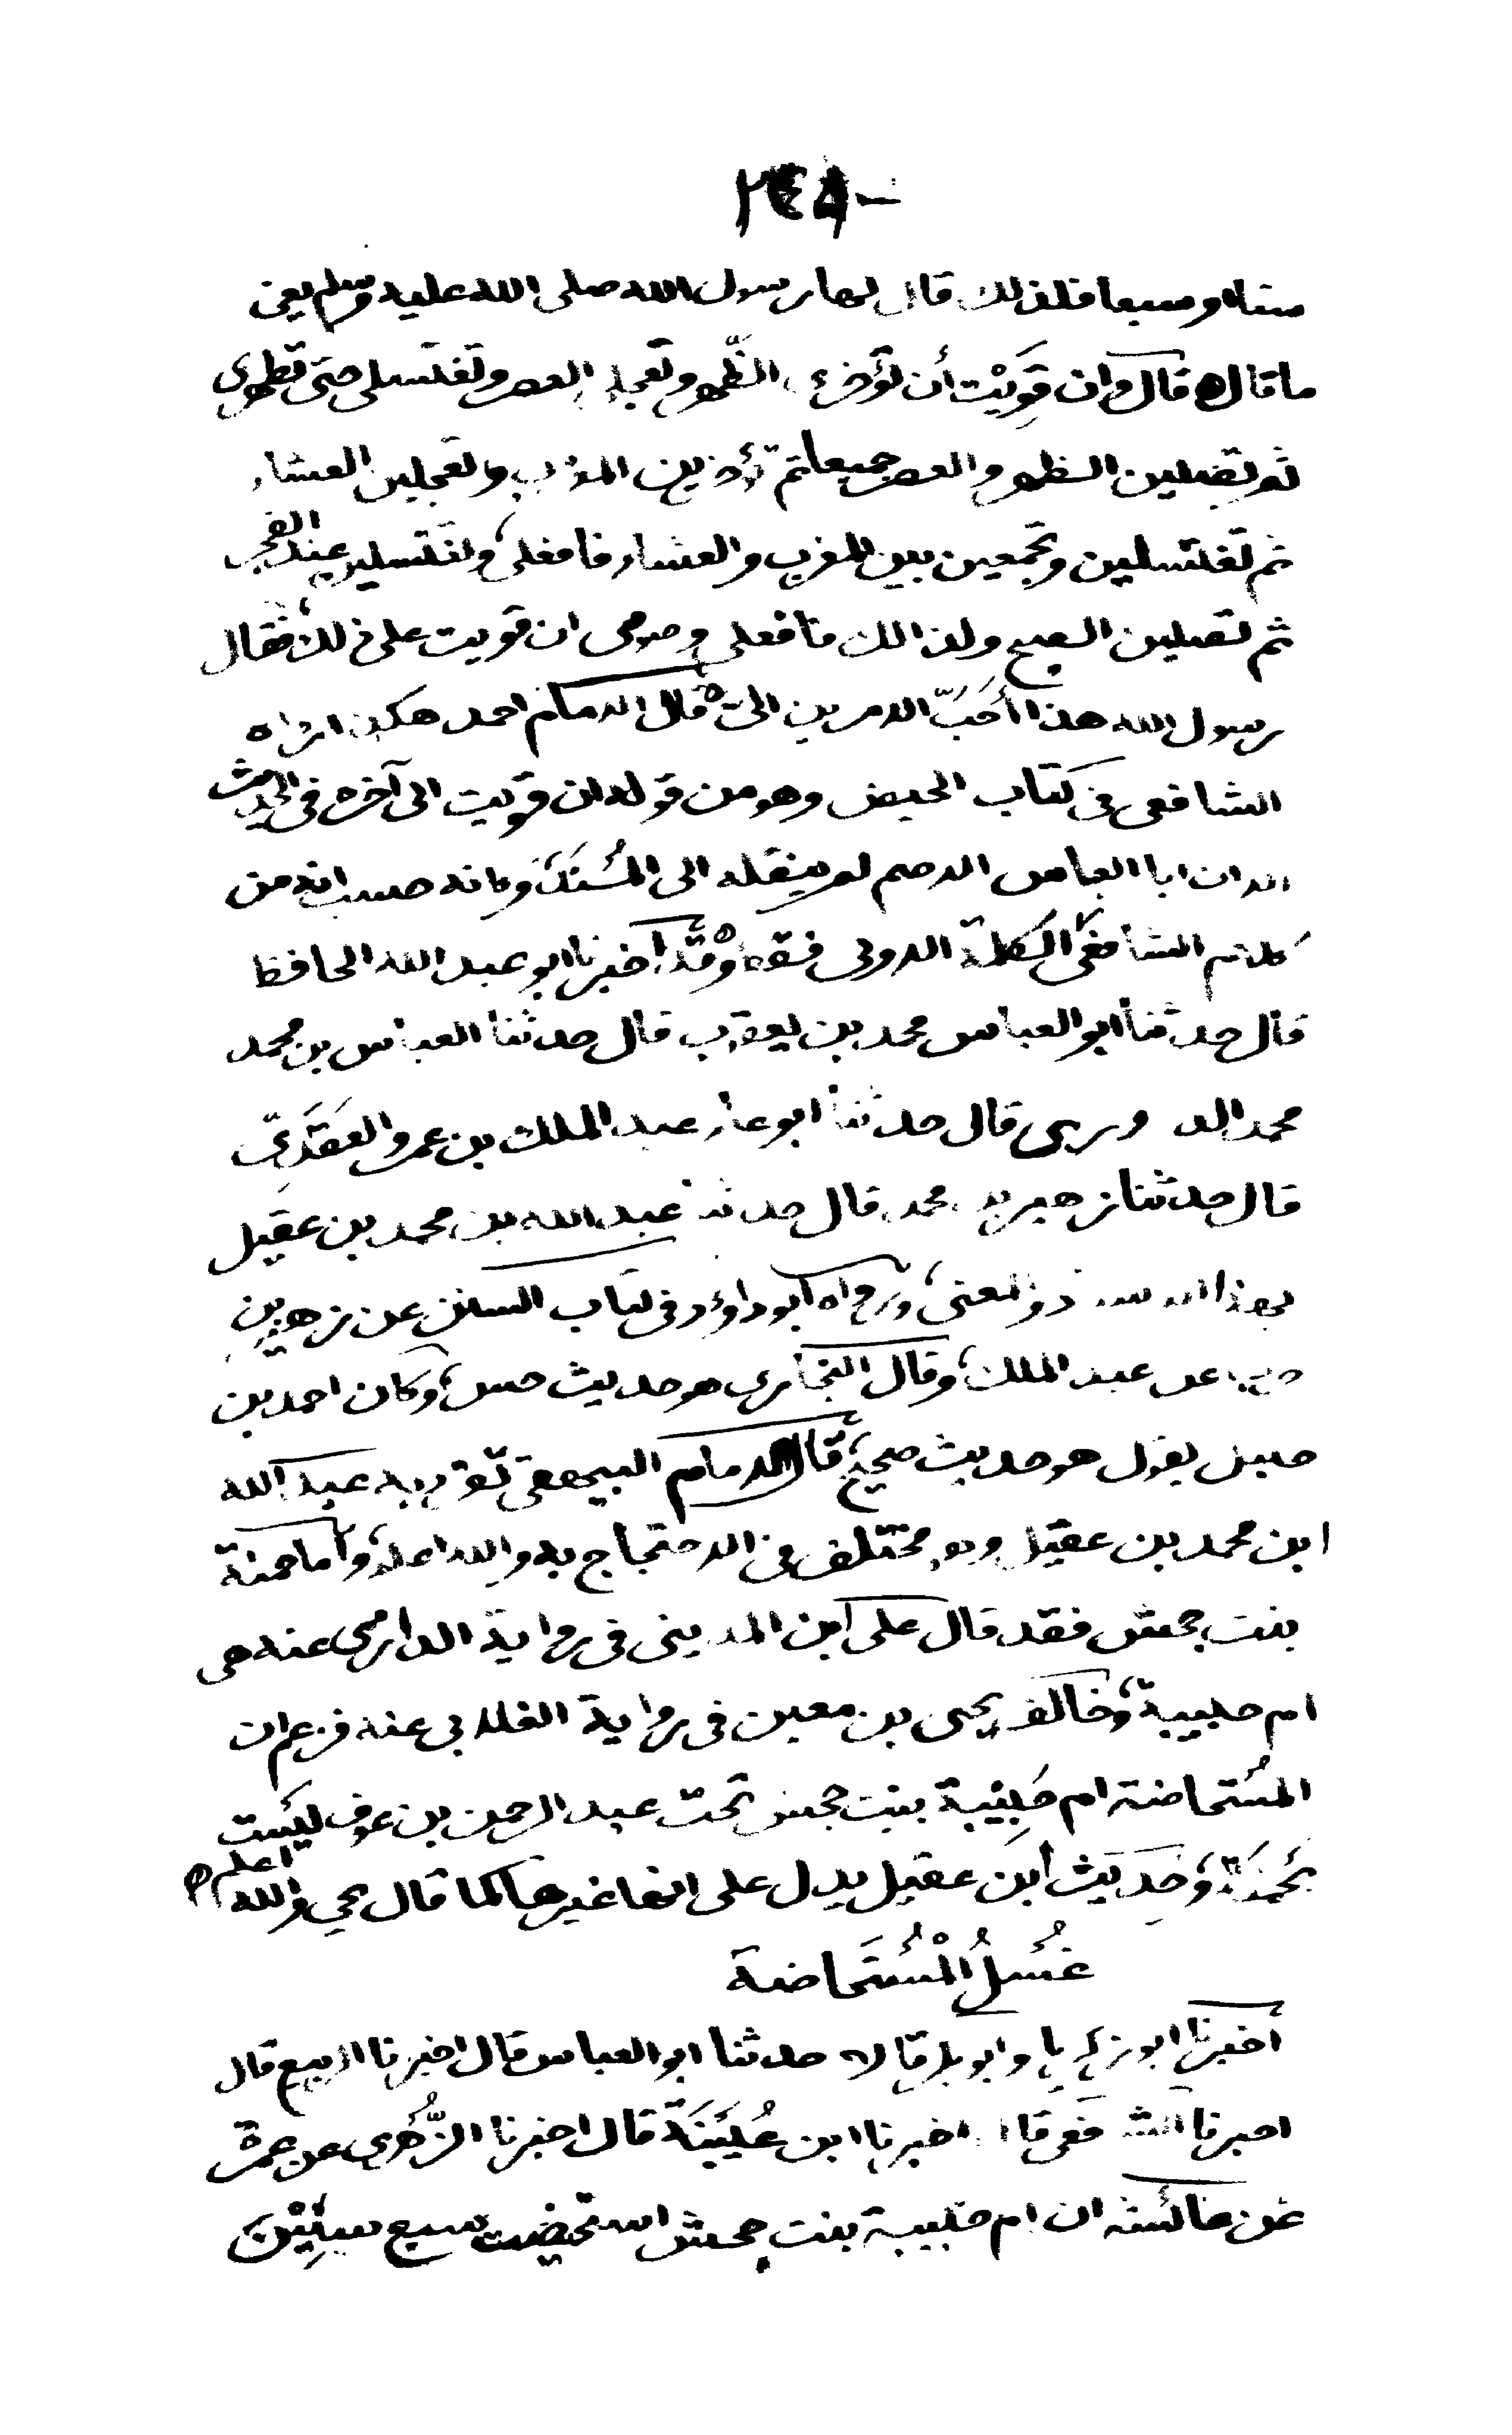 ستا او سبعا فلذلك قال لها رسول الله صلى الله عليه وسلم يعني
ما قال ه قال وان قَوِيْتِ أن تؤخري الظّهر وتعجلي العصر وتغتسلي حتى تطهري
ثم تصلين الظهر والعصر جميعا ثم تؤخرين المغرب وتعجلين العشاء
ثم تغتسلين وتجمعين بين المغرب والعشاء فافعلي، وتغتسلين عند الفجر
ثم تصلين الصبح وكذالك فافعلي وصومي ان قويت على ذلك، فقال
رسول الله هذا أحَبّ الامرين اليّ ه قال الامام احمد هكذا رواه
الشافعي في كتاب الحيض وهو من قوله ان قويت الى آخره في الحديث
الا ان ابا العباس الاصم لم ينقله الى المُسْنَد، وكانه حسب انه من
كلام الشافعي الكلمة الاولى فقط ه وقد أخبرنا ابو عبد الله الحافظ
قال حدثنا ابو العباس محمد بن يعقوب قال حدثنا العباس بن محمد
محمد الدوري قال حدثنا ابو عامر عبد الملك بن عمرو العَقَدِيّ
قال حدثنا زهير بن محمد قال حدثنا عبد الله بن محمد بن عقيل
بهذا الاسناد والمعنى، ورواه ابو داؤد في كتاب السنن عن زهير بن
عن عبد الملك، وقال البخاري هو حديث حسن، وكان احمد بن
حنبل يقول هو حديث صحيح، قال الامام البيهقي تفرد به عبد الله
ابن محمد بن عقيل وهو مختلف في الاحتجاج به والله اعلم، وأما حمنة
بنت جحش فقد قال علي ابن المديني في رواية الدارمي عنه هي
ام حبيبة، وخالفه يحيى بن معين في رواية الغلابي عنه فزعم ان
المُستحاضة ام حَبِيْبة بنت جحش تحت عبد الرحمن بن عوف ليْسَت
بحَمْنَة، وحديث ابن عقيل يدل على انها غيرها كما قال يحيى والله اعلم ه
غُسْلُ الْمُسْتَحَاضة
أخبرنا ابو زكريا وابو بكر قالا حدثنا ابو العباس قال اخبرنا الربيع قال
اخبرنا الشافعي قال اخبرنا ابن عُيَيْنَة قال اخبرنا الزُّهْري عن عمرة
عن عائشة ان ام حبيبة بنت جحش استحيضت سبع سِنِيْنَ